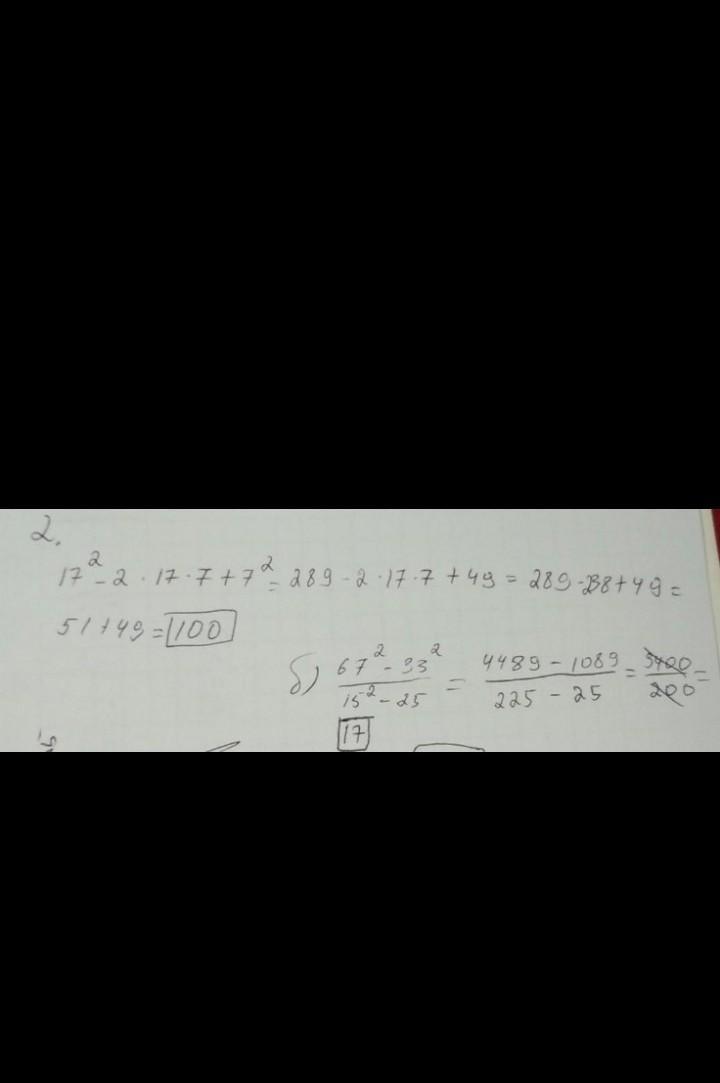 2.
17² - 2 · 17 · 7 + 7² = 289 - 2 · 17 · 7 + 49 = 289 - 238 + 49 =
51 + 49 = 100
б) 67² - 33² / 15² - 25 = 4489 - 1089 / 225 - 25 = 3400 / 200 =
17